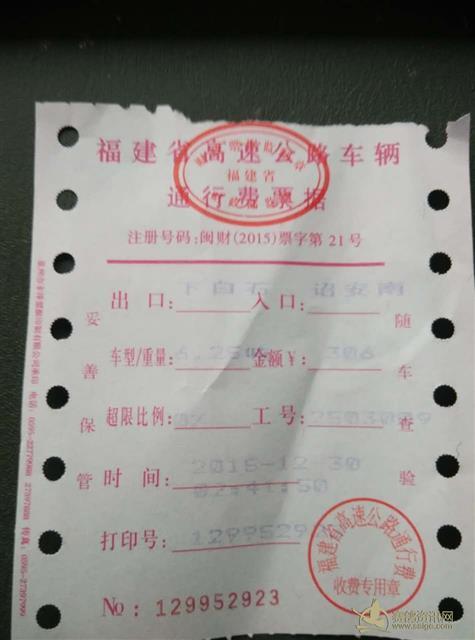 福建省高速公路车辆
福建省
通行费票据
注册号码:闽财(2015)票字第21号
出口: 下白石 入口: 诏安南
车型/重量: 金额¥: 306
超限比例: 0% 工号: 2503009
时间: 2015-12-30
02:41:50
打印号: 1299529
No: 129952923
妥善保管
随车查验
福建省高速公路通行费
收费专用章
赛鸽资讯网
www.saige.com